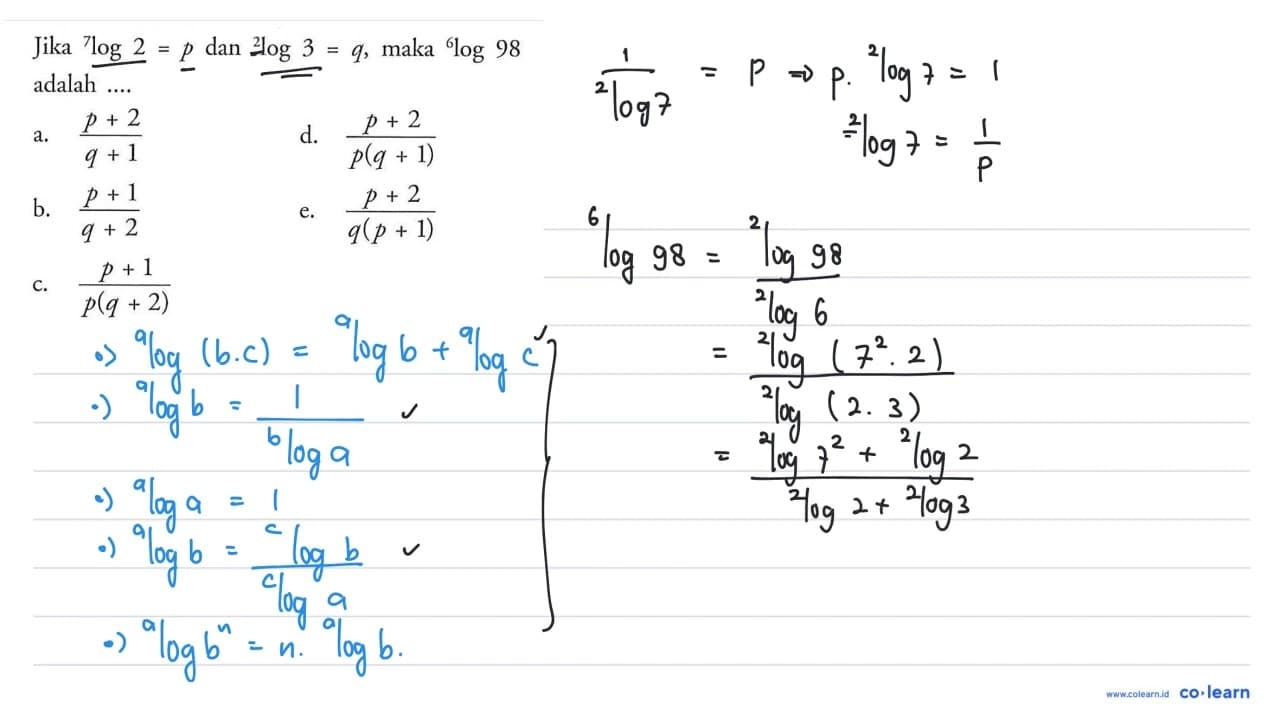 Jika ⁷log 2 = p dan ²log 3 = q, maka ⁶log 98
adalah ....
a. (p + 2)/(q + 1)
d. (p + 2)/(p(q + 1))
b. (p + 1)/(q + 2)
e. (p + 2)/(q(p + 1))
c. (p + 1)/(p(q + 2))
•) ᵃlog (b.c) = ᵃlog b + ᵃlog c ✓
•) ᵃlog b = 1/(ᵇlog a) ✓
•) ᵃlog a = 1
•) ᵃlog b = (ᶜlog b)/(ᶜlog a) ✓
•) ᵃlog bⁿ = n. ᵃlog b.
1/(²log 7) = p ⇒ p. ²log 7 = 1
²log 7 = 1/p
⁶log 98 = (²log 98)/(²log 6)
= (²log (7². 2))/(²log (2. 3))
= (²log 7² + ²log 2)/(²log 2 + ²log 3)
www.colearn.id co·learn